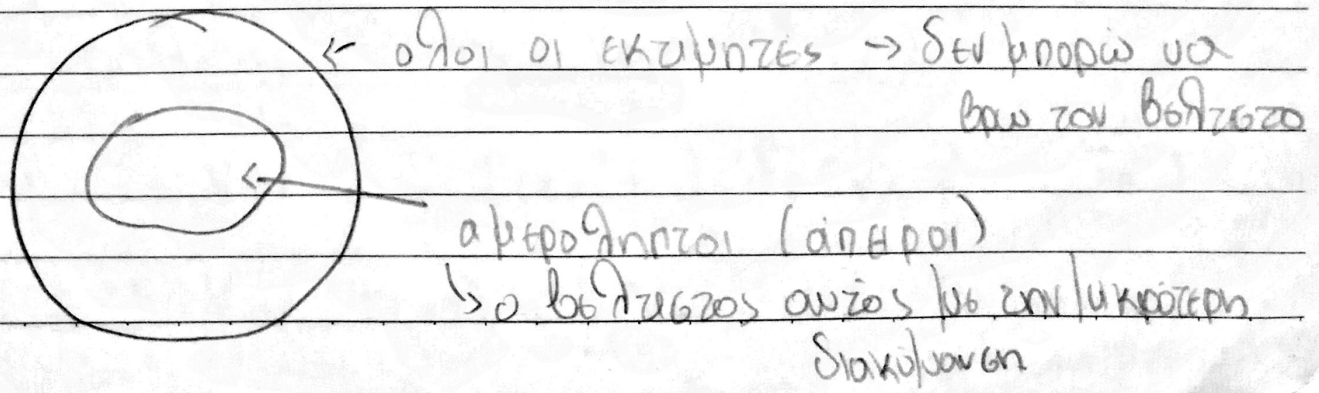 ← όλοι οι εκτιμητές → δεν μπορώ να
βρω τον βέλτιστο
αμερόληπτοι (άπειροι)
↳ ο βέλτιστος αυτός με την μικρότερη
διακύμανση